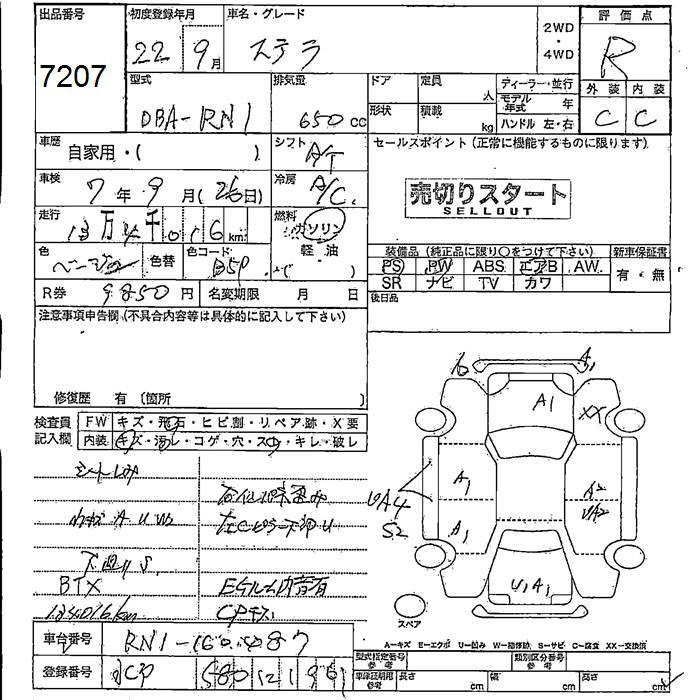 出品番号
7207
初度登録年月
22 9月
車名・グレード
ステラ
2WD
・
4WD
評価点
R
外装 内装
C C
型式
DBA-RN1
排気量
650 cc
ドア
定員
人
形状
積載
kg
ディーラー・並行
モデル年式 年
ハンドル 左・右
車歴
自家用・( )
シフト
A/T
セールスポイント (正常に機能するものに限ります)
売切りスタート
SELLOUT
車検
7年 9月 (26日)
冷房
A/C
走行
13万4千016km
燃料
ガソリン
軽・油
色
ベージュ
色替
色コード
B5P
装備品 (純正品に限り○をつけて下さい)
新車保証書
PS PW ABS エアB AW
有・無
SR ナビ TV カワ
R券 9850円
名変期限 月 日
後日品
注意事項申告欄 (不具合内容等は具体的に記入して下さい)
修復歴 有 (箇所 )
検査員
記入欄
FW キズ・飛石・ヒビ割・リペア跡・X要
内装 キズ・汚レ・コゲ・穴・スレ・キレ・破レ
下廻りS
BTX
134016km
A1
A1
XX
A1
A2
UA2
UA4
S2
A1
U1A1
スペア
A-キズ E-エクボ U-凹み W-補修跡 S-サビ C-腐食 XX-交換済
車台番号
RN1-
登録番号
型式指定番号
参考
類別区分番号
参考
車庫証明用
参考
長さ cm
幅 cm
高さ cm